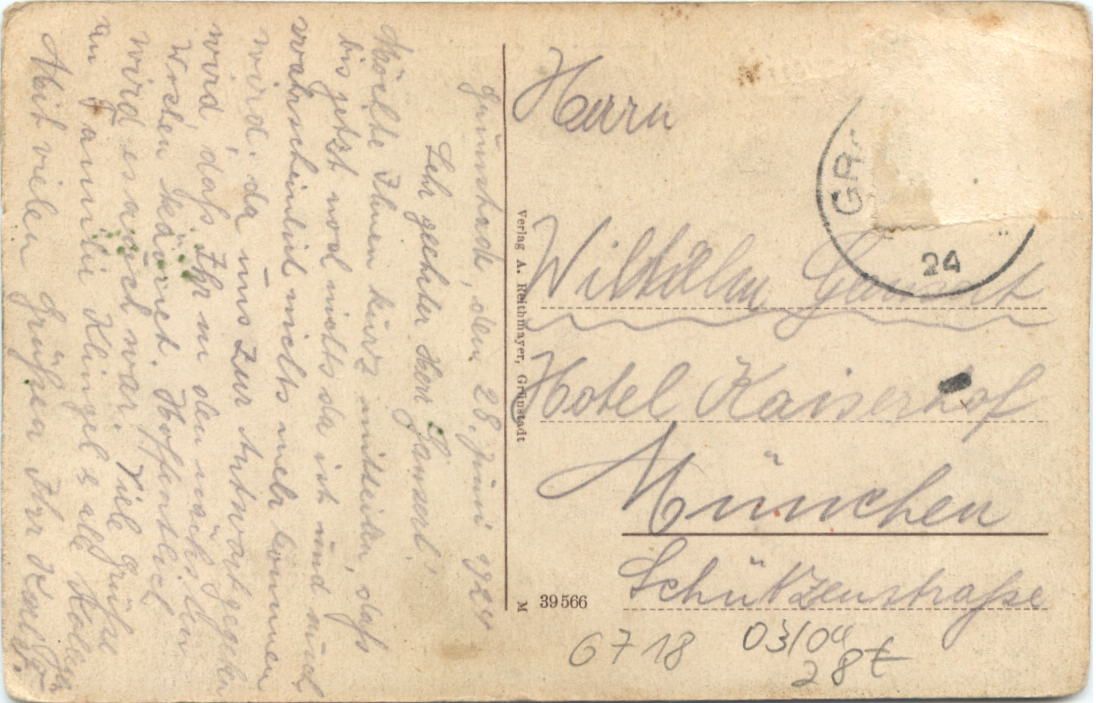 Grünstadt, den 28. Juni 1924
Sehr geehrter Herr
Möchte Ihnen kurz mitteilen, dass
bis jetzt noch nichts da ist und auch
wahrscheinlich nichts mehr kommen
wird, da uns zur Antwort gegeben
wird, daß Ihr in den nächsten
Wochen Hoffentlich
wird es auch war. Viele Grüsse
an Familie Klingel &
Mit vielen Grüßen Ihr
Verlag A. Reithmayer, Grünstadt
M 39566
Herrn
GR
24
Wilhelm
Hotel Kaiserhof
München
Schützenstraße
6718 03/04
28t